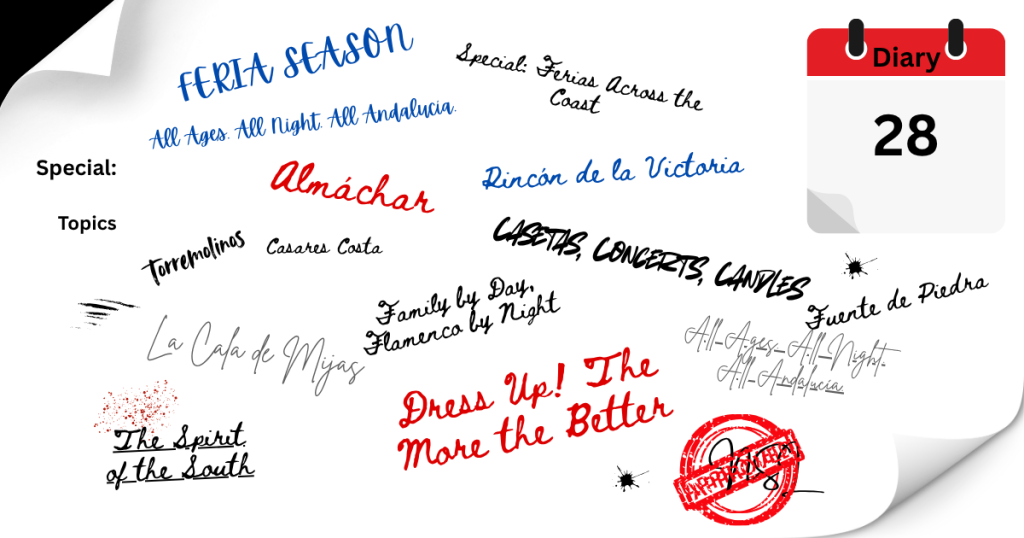 FERIA SEASON
All Ages. All Night. All Andalucía.
Special: Ferias Across the
Coast
Diary
28
Special:
Almáchar
Rincón de la Victoria
Topics
Torremolinos
Casares Costa
CASETAS, CONCERTS, CANDLES
Family by Day,
Flamenco by Night
Fuente de Piedra
La Cala de Mijas
All Ages. All Night.
All Andalucía.
Dress Up! The
More the Better
The Spirit
of the South
APPROVED